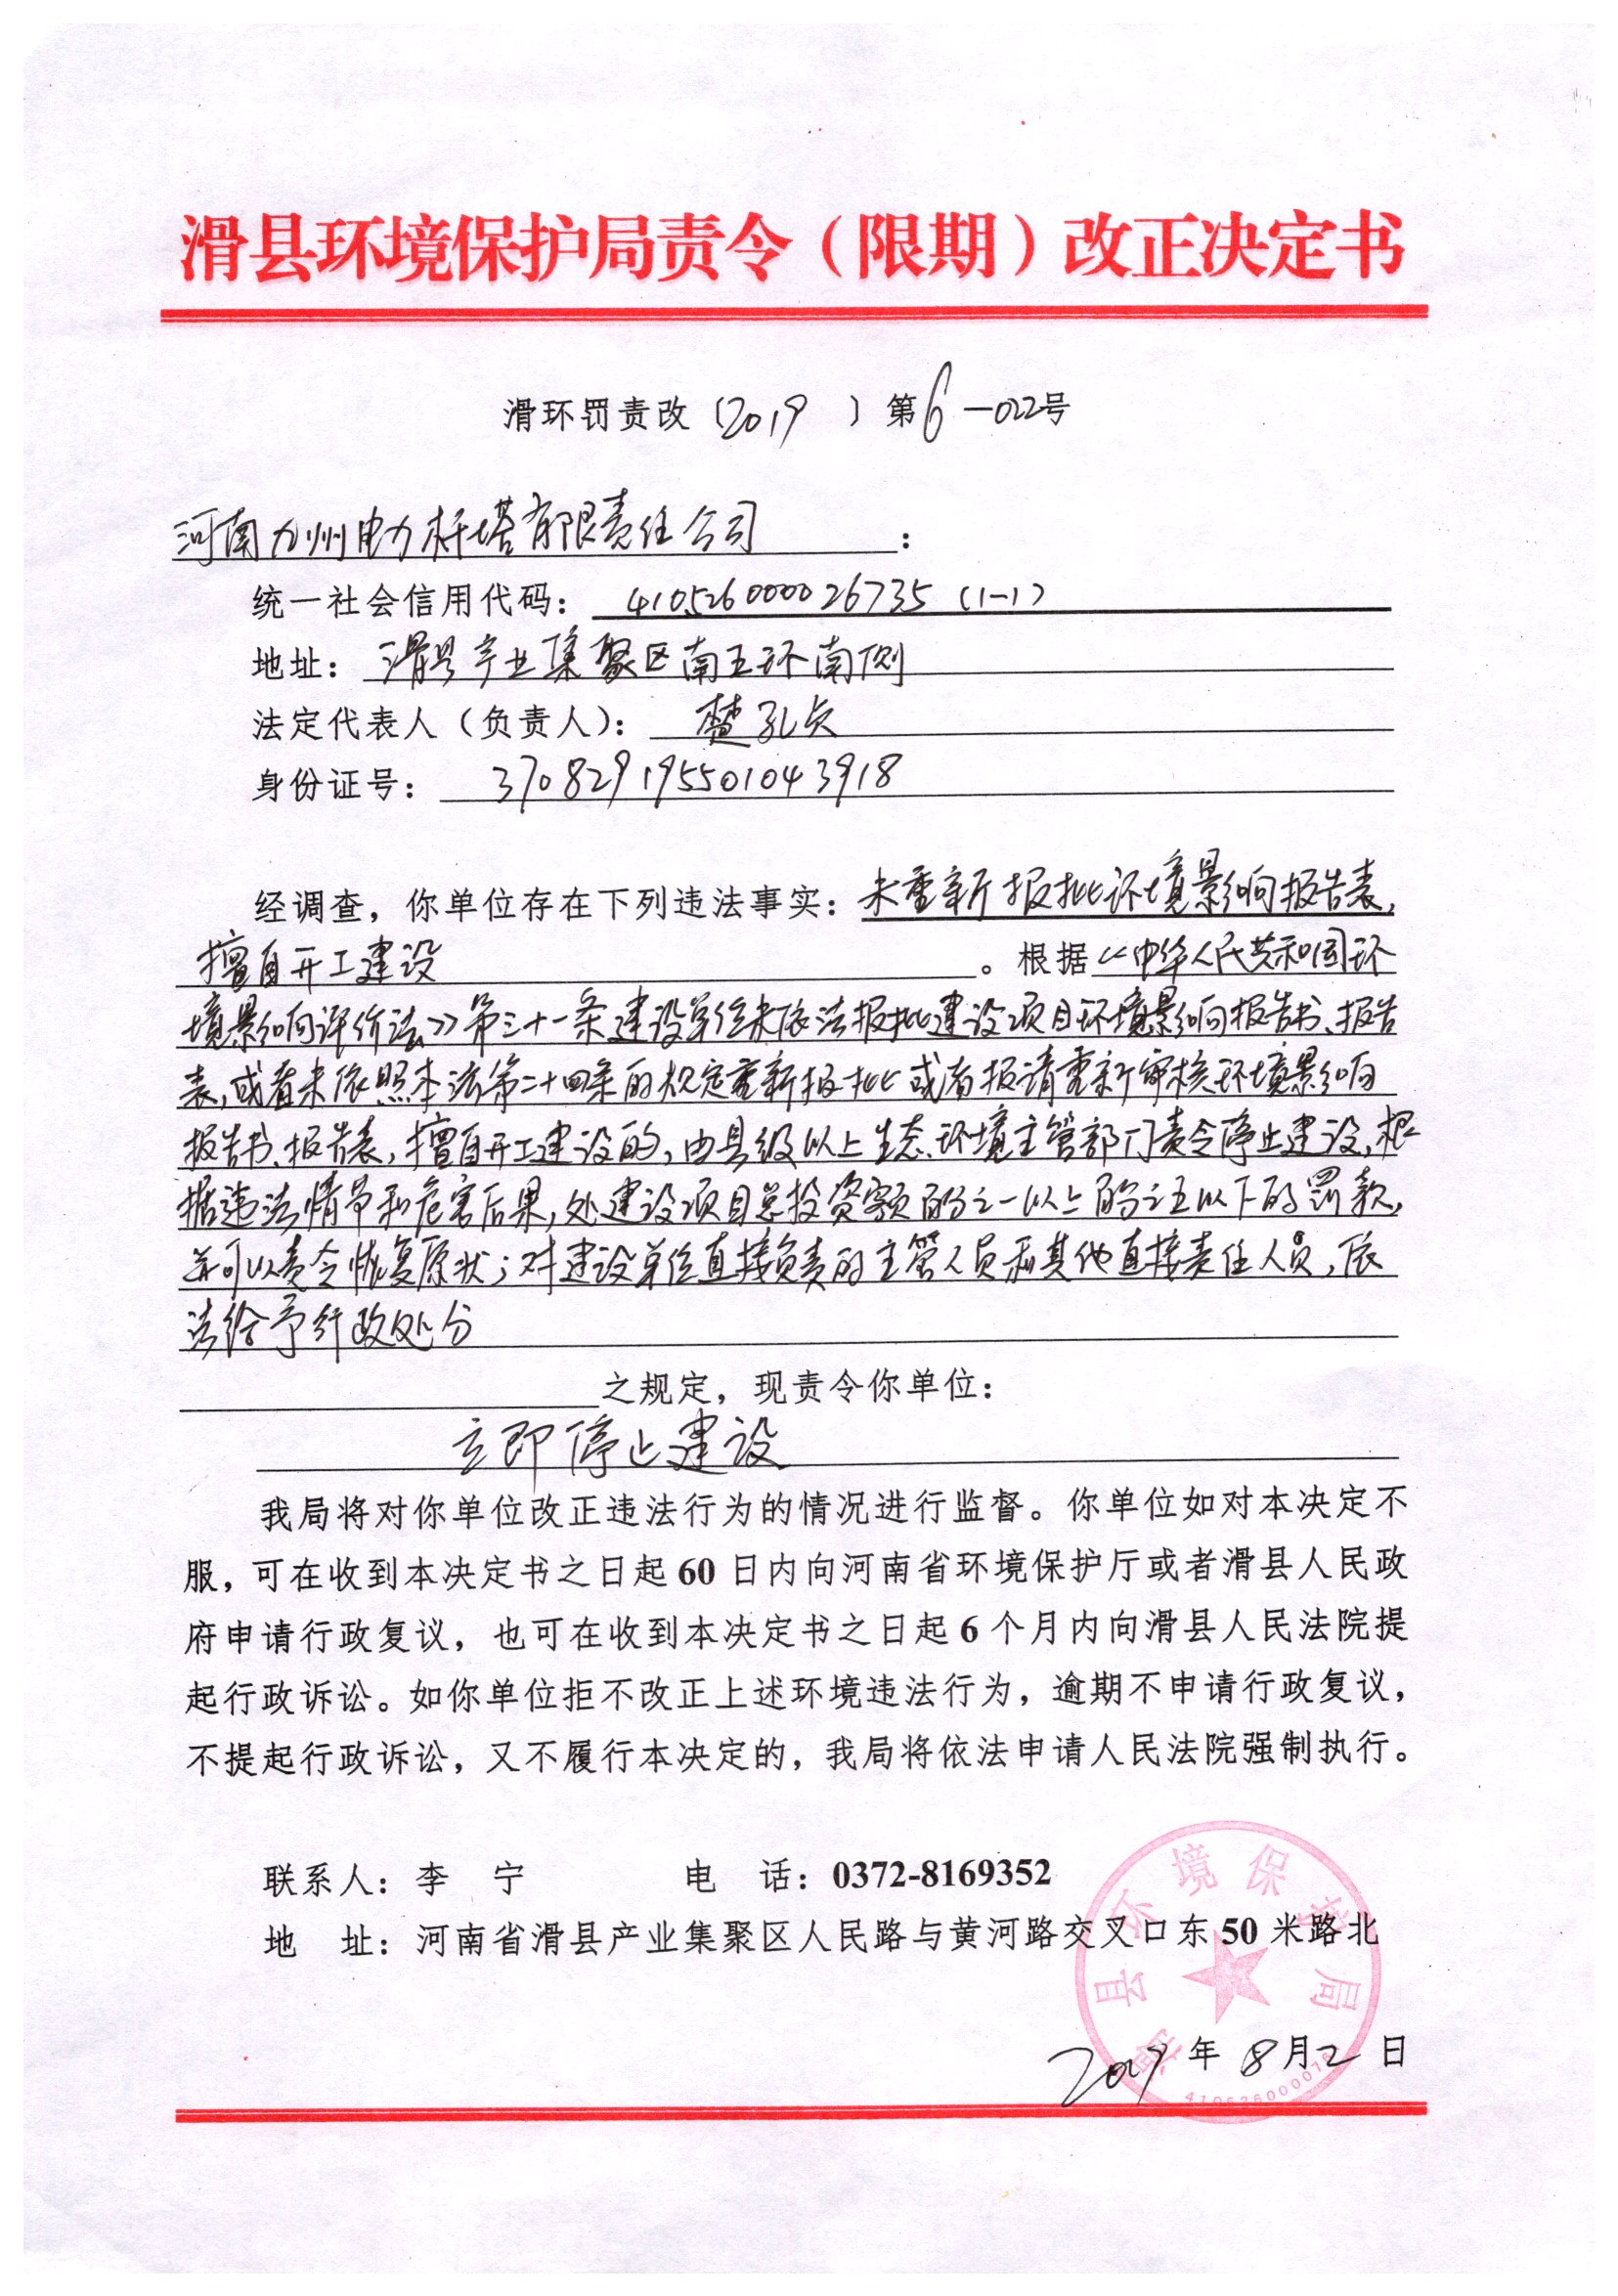 滑县环境保护局责令（限期）改正决定书
滑环罚责改〔2019 〕第6-022号
河南九州电力杆塔有限责任公司：
统一社会信用代码：410526000026735（1-1）
地址：滑县产业集聚区南五环南侧
法定代表人（负责人）：楚孔贞
身份证号：370829195501043918
经调查，你单位存在下列违法事实：未重新报批环境影响报告表，
擅自开工建设。根据《中华人民共和国环
境影响评价法》第三十一条建设单位未依法报批建设项目环境影响报告书、报告
表，或者未依照本法第二十四条的规定重新报批或者报请重新审核环境影响
报告书、报告表，擅自开工建设的，由县级以上生态环境主管部门责令停止建设，根
据违法情节和危害后果，处建设项目总投资额百分之一以上百分之五以下的罚款，
并可以责令恢复原状；对建设单位直接负责的主管人员和其他直接责任人员，依
法给予行政处分
之规定，现责令你单位：
立即停止建设
我局将对你单位改正违法行为的情况进行监督。你单位如对本决定不
服，可在收到本决定书之日起60日内向河南省环境保护厅或者滑县人民政
府申请行政复议，也可在收到本决定书之日起6个月内向滑县人民法院提
起行政诉讼。如你单位拒不改正上述环境违法行为，逾期不申请行政复议，
不提起行政诉讼，又不履行本决定的，我局将依法申请人民法院强制执行。
联系人：李 宁 电 话：0372-8169352
地 址：河南省滑县产业集聚区人民路与黄河路交叉口东50米路北
滑县环境保护局
2019年8月2日